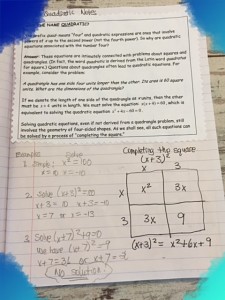 Quadratic Notes
THE NAME QUADRATIC?
quad means "four" and quadratic expressions are ones that involve
powers of x up to the second power (not the fourth power). So why are quadratic
equations associated with the number four?
Answer: These equations are intimately connected with problems about squares and
quadrangles. (In fact, the word quadratic is derived from the Latin word quadratus
for square.) Questions about quadrangles often lead to quadratic equations. For
example, consider the problem:
A quadrangle has one side four units longer than the other. Its area is 60 square
units. What are the dimensions of the quadrangle?
If we denote the length of one side of the quadrangle as x units, then the other
must be x + 4 units in length. We must solve the equation: x(x+4)=60, which is
equivalent to solving the quadratic equation x²+4x-60=0.
Solving quadratic equations, even if not derived from a quadrangle problem, still
involves the geometry of four-sided shapes. As we shall see, all such equations can
be solved by a process of "completing the square."
Examples:
Solve x²=100
x=10 x=-10
2. Solve (x+3)²=100
x+3=10 x+3=-10
x=7 or x=-13
3. Solve (x+7)²+9=0
(x+7)²=-9
x+7=3i or x+7=
No solution
Completing the square
(x+3)²
x 3
x x² 3x
3 3x 9
(x+3)²= x²+6x+9